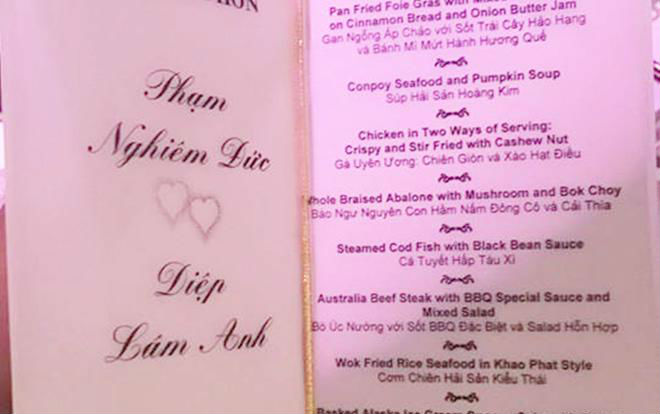 Phạm
Nghiêm Đức
Diệp
Lâm Anh
Pan Fried Foie Gras with
on Cinnamon Bread and Onion Butter Jam
Gan Ngỗng Áp Chảo với Sốt Trái Cây Hảo Hạng
và Bánh Mì Mứt Hành Hương Quế
Conpoy Seafood and Pumpkin Soup
Súp Hải Sản Hoàng Kim
Chicken in Two Ways of Serving:
Crispy and Stir Fried with Cashew Nut
Gà Uyên Ương: Chiên Giòn và Xào Hạt Điều
hole Braised Abalone with Mushroom and Bok Choy
Bào Ngư Nguyên Con Hầm Nấm Đông Cô và Cải Thìa
Steamed Cod Fish with Black Bean Sauce
Cá Tuyết Hấp Tàu Xì
Australia Beef Steak with BBQ Special Sauce and
Mixed Salad
Bò Úc Nướng với Sốt BBQ Đặc Biệt và Salad Hỗn Hợp
Wok Fried Rice Seafood in Khao Phat Style
Cơm Chiên Hải Sản Kiểu Thái